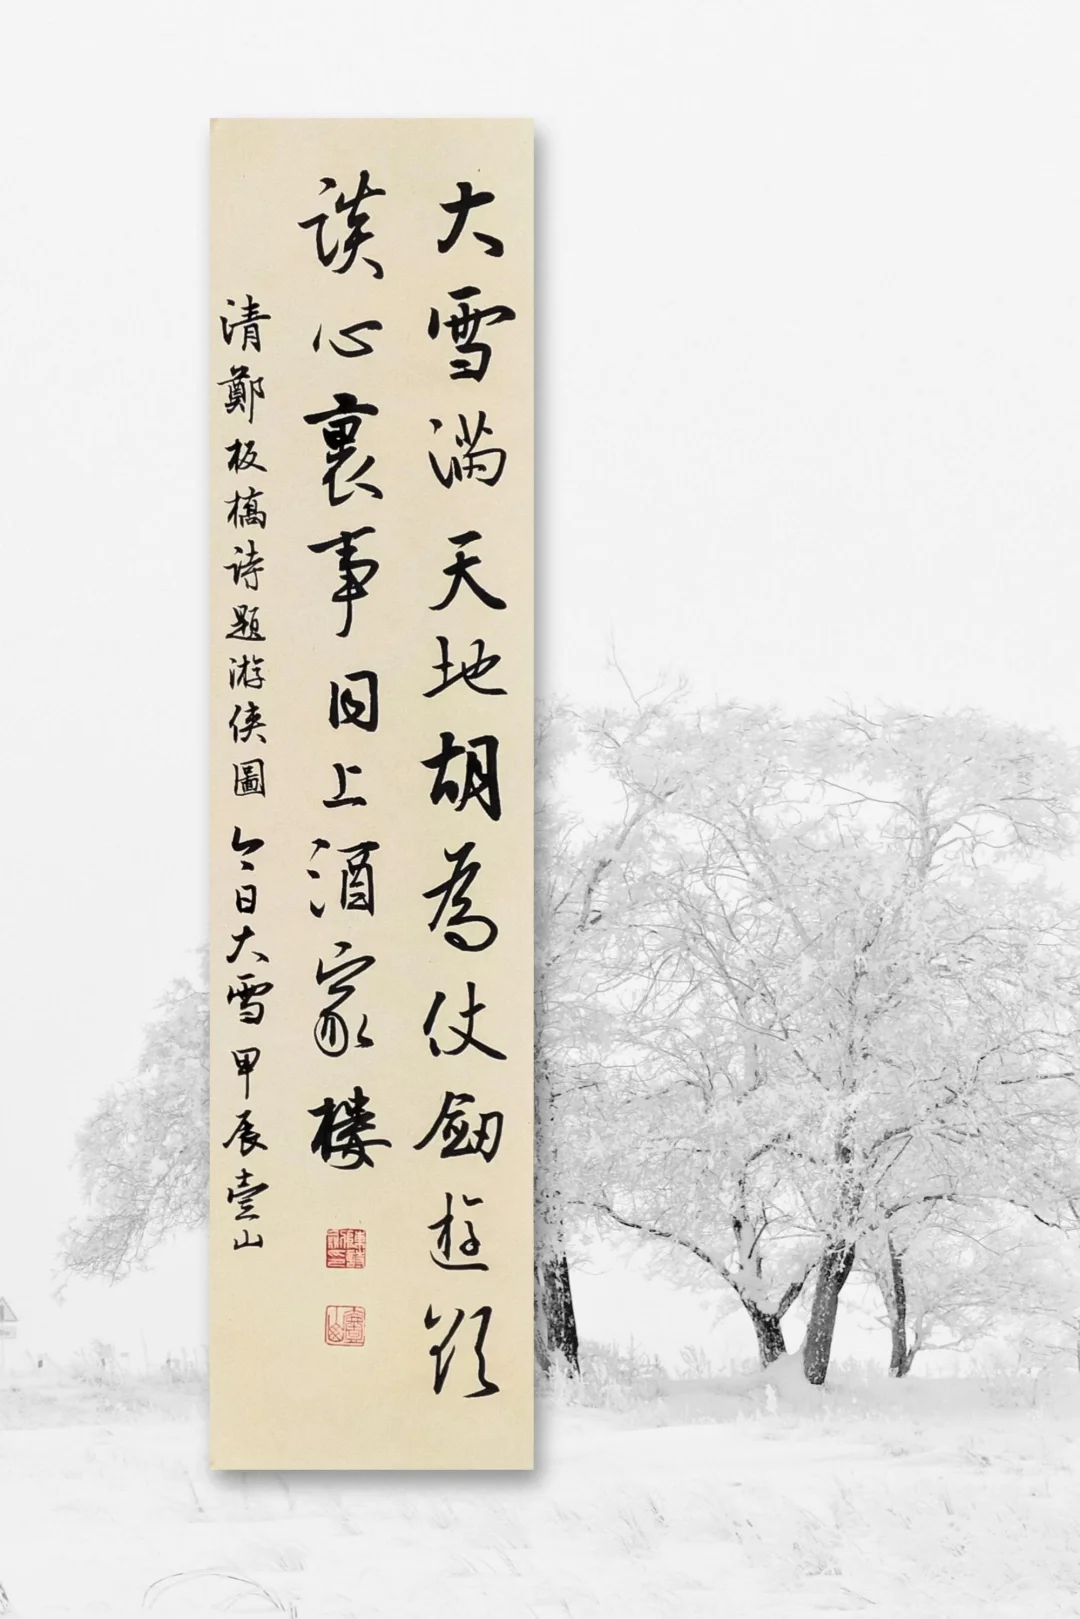 大雪满天地胡为仗劒遊欲
談心裏事同上酒家楼
清鄭板橋诗题游侠圖今日大雪甲辰壹山